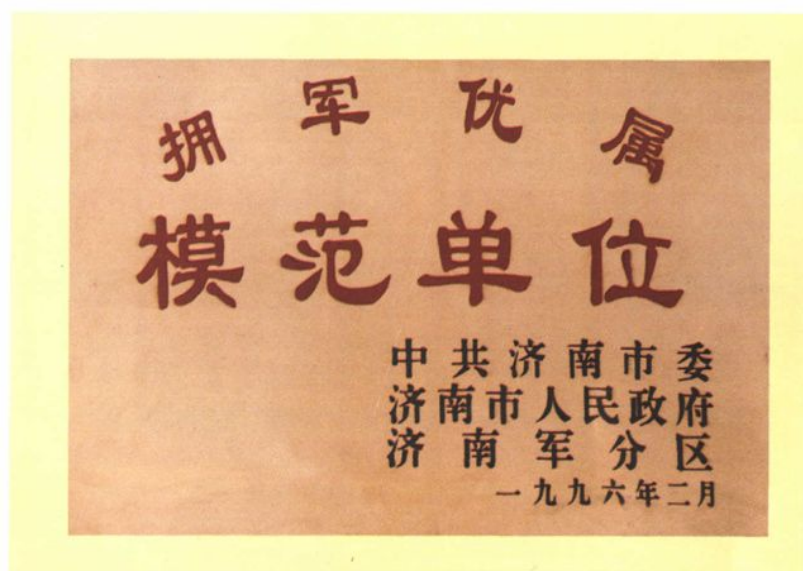 拥军优属
模范单位
中共济南市委
济南市人民政府
济南军分区
一九九六年二月